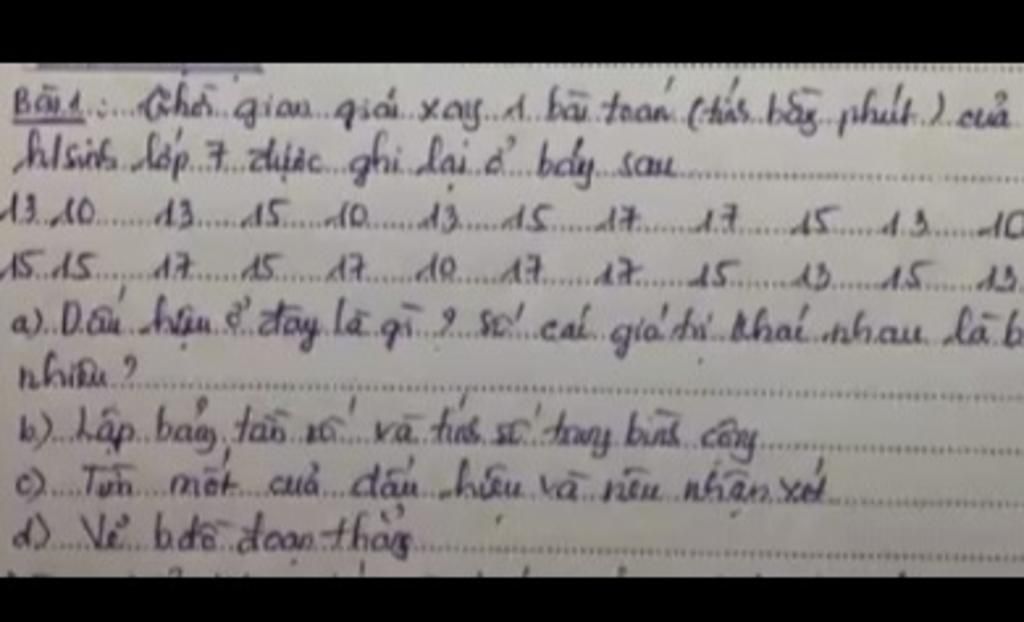 Bài 1: Thời gian giải xong 1 bài toán (tính bằng phút) của
h/sinh lớp 7 được ghi lại ở bảng sau
13 10 13 15 10 13 15 17 17 15 13 10
15 15 17 15 17 10 17 17 15 13 15 13
a) Dấu hiệu ở đây là gì? số các giá trị khác nhau là b
nhiêu?
b) Lập bảng tần số và tính số trung bình cộng
c) Tìm mốt của dấu hiệu và nêu nhận xét
d) Vẽ b đồ đoạn thẳng